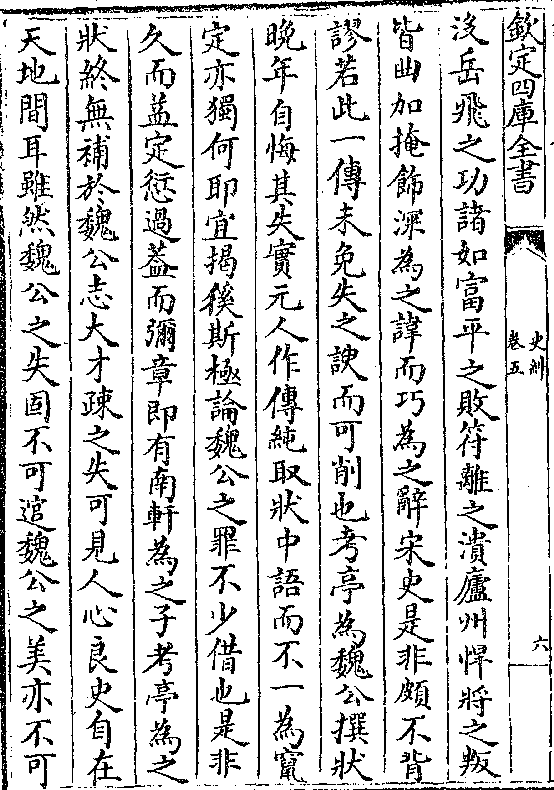 欽定四庫全書
史糾
卷五
六
沒岳飛之功諸如富平之敗符離之潰廬州悍將之叛
皆曲加掩飾深為之諱而巧為之辭宋史是非頗不背
謬若此一傳未免失之諛而可削也考亭為魏公撰狀
晚年自悔其失實元人作傳純取狀中語而不一為竄
定亦獨何耶宜揭徯斯極論魏公之罪不少借也是非
久而益定愆過蓋而彌章即有南軒為之子考亭為之
狀終無補於魏公志大才疎之失可見人心良史自在
天地間耳雖然魏公之失固不可逭魏公之美亦不可